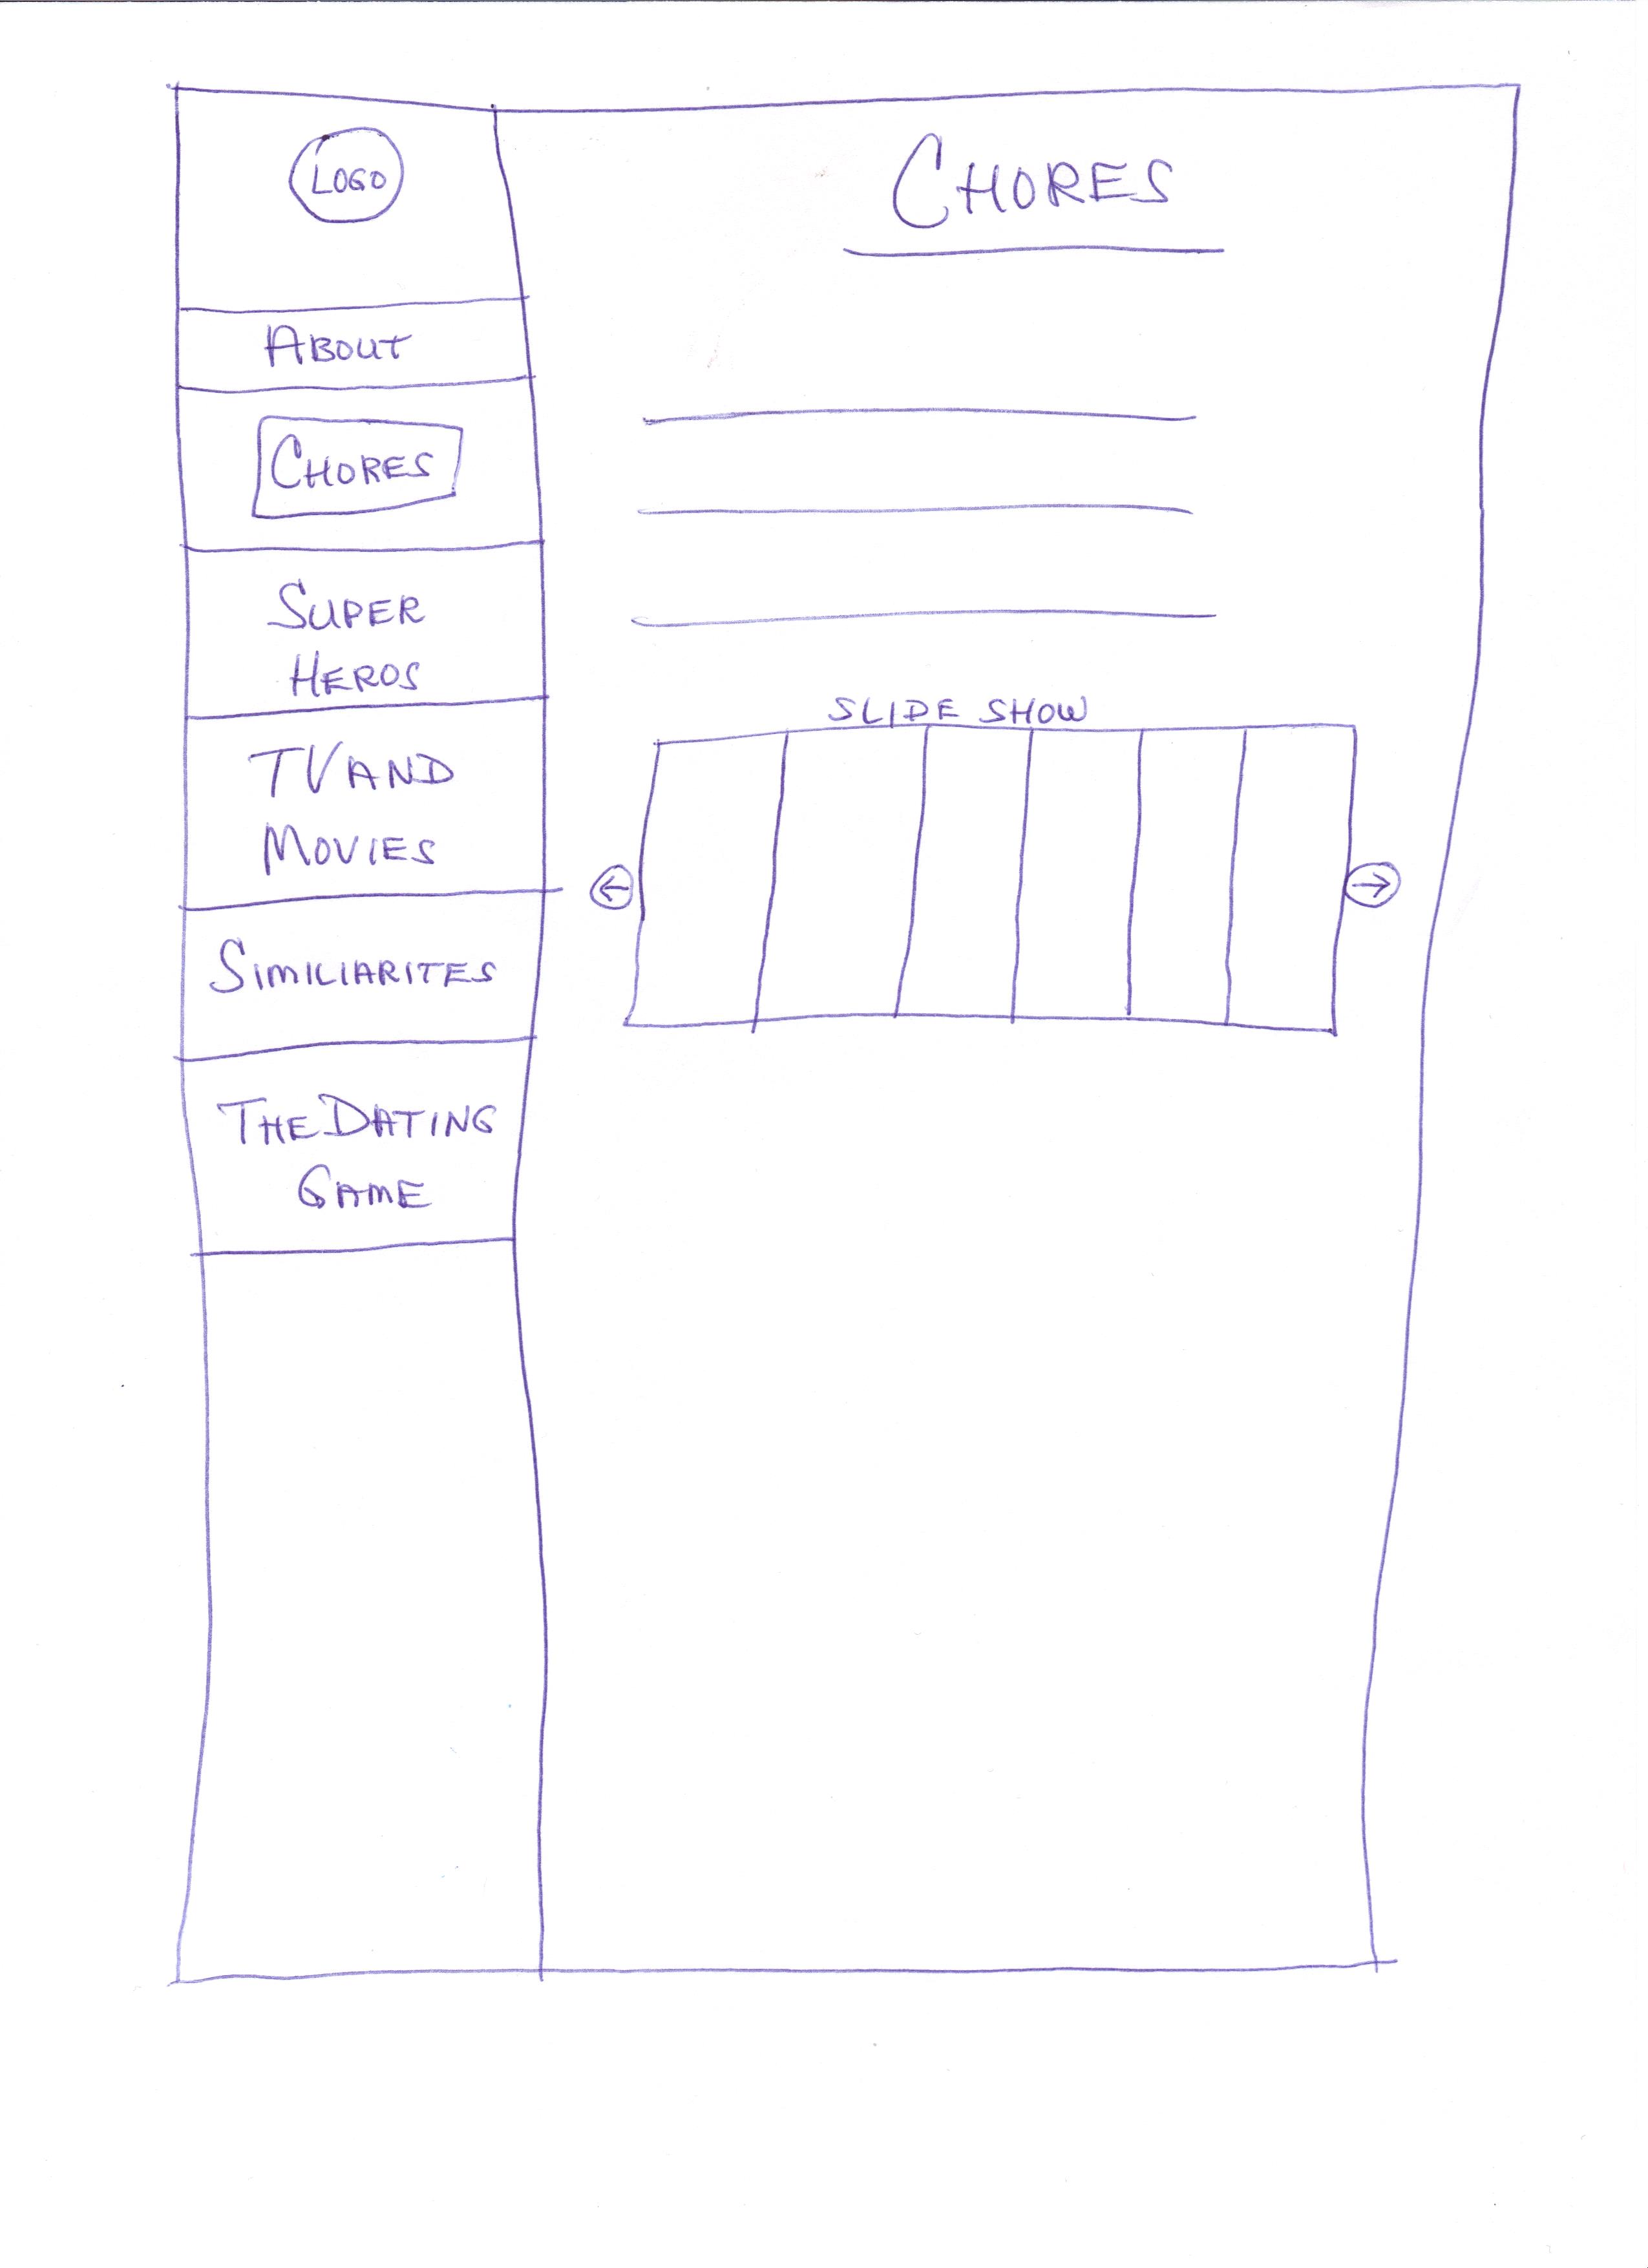 LOGO
CHORES
ABOUT
CHORES
SUPER
HEROS
TV AND
MOVIES
SIMILIARITES
THE DATING
GAME
SLIDE SHOW